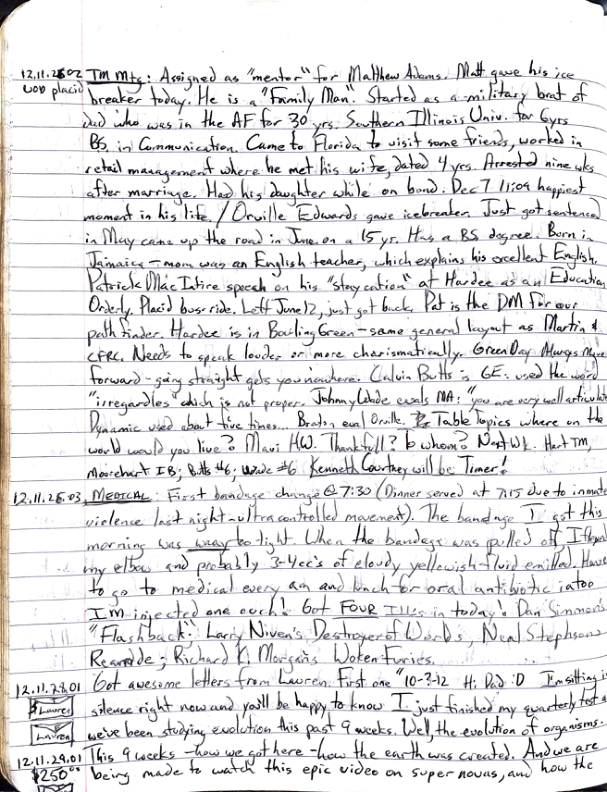 12.11.2602 TM Mtg: Assigned as "mentor" for Matthew Adams. Matt gave his ice
wob placid breaker today. He is a "Family Man". Started as a military brat of
dad who was in the AF for 30 yrs. Southern Illinois Univ. for 6yrs
BS in Communication. Came to Florida to visit some friends, worked in
retail management where he met his wife, dated 4 yrs. Arrested nine wks
after marriage. Had his daughter while on bond. Dec 7 11:09 happiest
moment in his life. / Orville Edwards gave icebreaker. Just got sentenced
in May came up the road in June on a 15 yr. Has a BS degree. Born in
Jamaica - mom was an English teacher, which explains his excellent English.
Patrick MacIntire speech on his "staycation" at Hardee as an Education
Orderly. Placid bus ride. Left June 12, just got back. Pat is the DM for our
path finder. Hardee is in Bowling Green - same general layout as Martin &
CFRC. Needs to speak louder or more charismatically. Green Day Always Move
forward - going straight gets you nowhere. Calvin Butts is GE: used the word
"irregardles" which is not proper. Johnny Wade evals MA: "you are very well articulate
Dynamic used about five times... Braton eval Orville. Table Topics where on the
world would you live? Maui HW. Thankfull? to whom? Next Wk. Hart TM,
Moorehart IB; Butts #6; Wade #6 Kenneth Courtney will be Timer!
12.11.26.03 MEDICAL: First bandage change @ 7:30 (Dinner served at 7:15 due to inmate
violence last night - ultra controlled movement). The bandage I got this
morning was waay too tight. When the bandage was pulled off I flexed
my elbow and probably 3-4cc's of cloudy yellowish fluid emitted. Have
to go to medical every am and lunch for oral antibiotic
I'm injected one ouch! Got FOUR ILL's in today! Dan Simmon's
"Flashback"; Larry Niven's Destroyer of Worlds, Neal Stephson's
Reamde; Richard K. Morgan's Woken Furies.
12.11.28.01 Got awesome letters from Lauren. First one "10-3-12 Hi Dad :D I'm sitting in
Lauren silence right now and you'll be happy to know I just finished my quarterly test &
Lauren we've been studying evolution this past 9 weeks. Well, the evolution of organisms.
12.11.29.01 This 9 weeks - how we got here - how the earth was created. And we are
$250.00 being made to watch this epic video on super novas, and how the